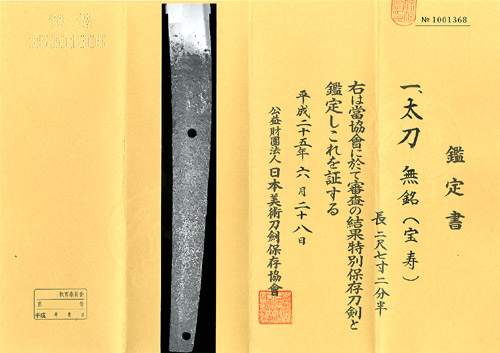 № 1001368
鑑定書
一、太刀 無銘(宝寿)
長 二尺七寸二分半
右は當協會に於て審査の結果特別保存刀剣と
鑑定しこれを証する
平成二十五年六月二十八日
公益財團法人 日本美術刀剣保存協會
教育委員会
第 号
平成 年 月 日